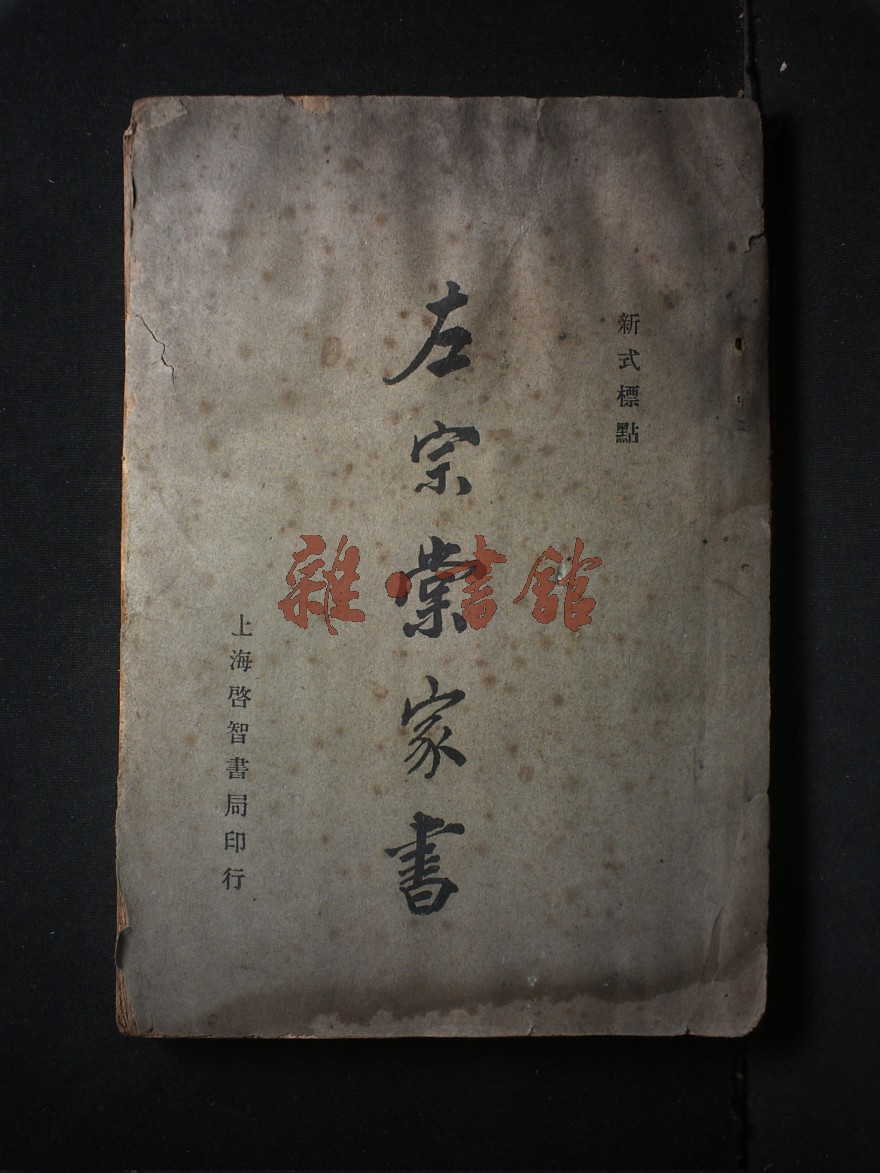 新式標點
左宗棠家書
上海啓智書局印行
雜·書館